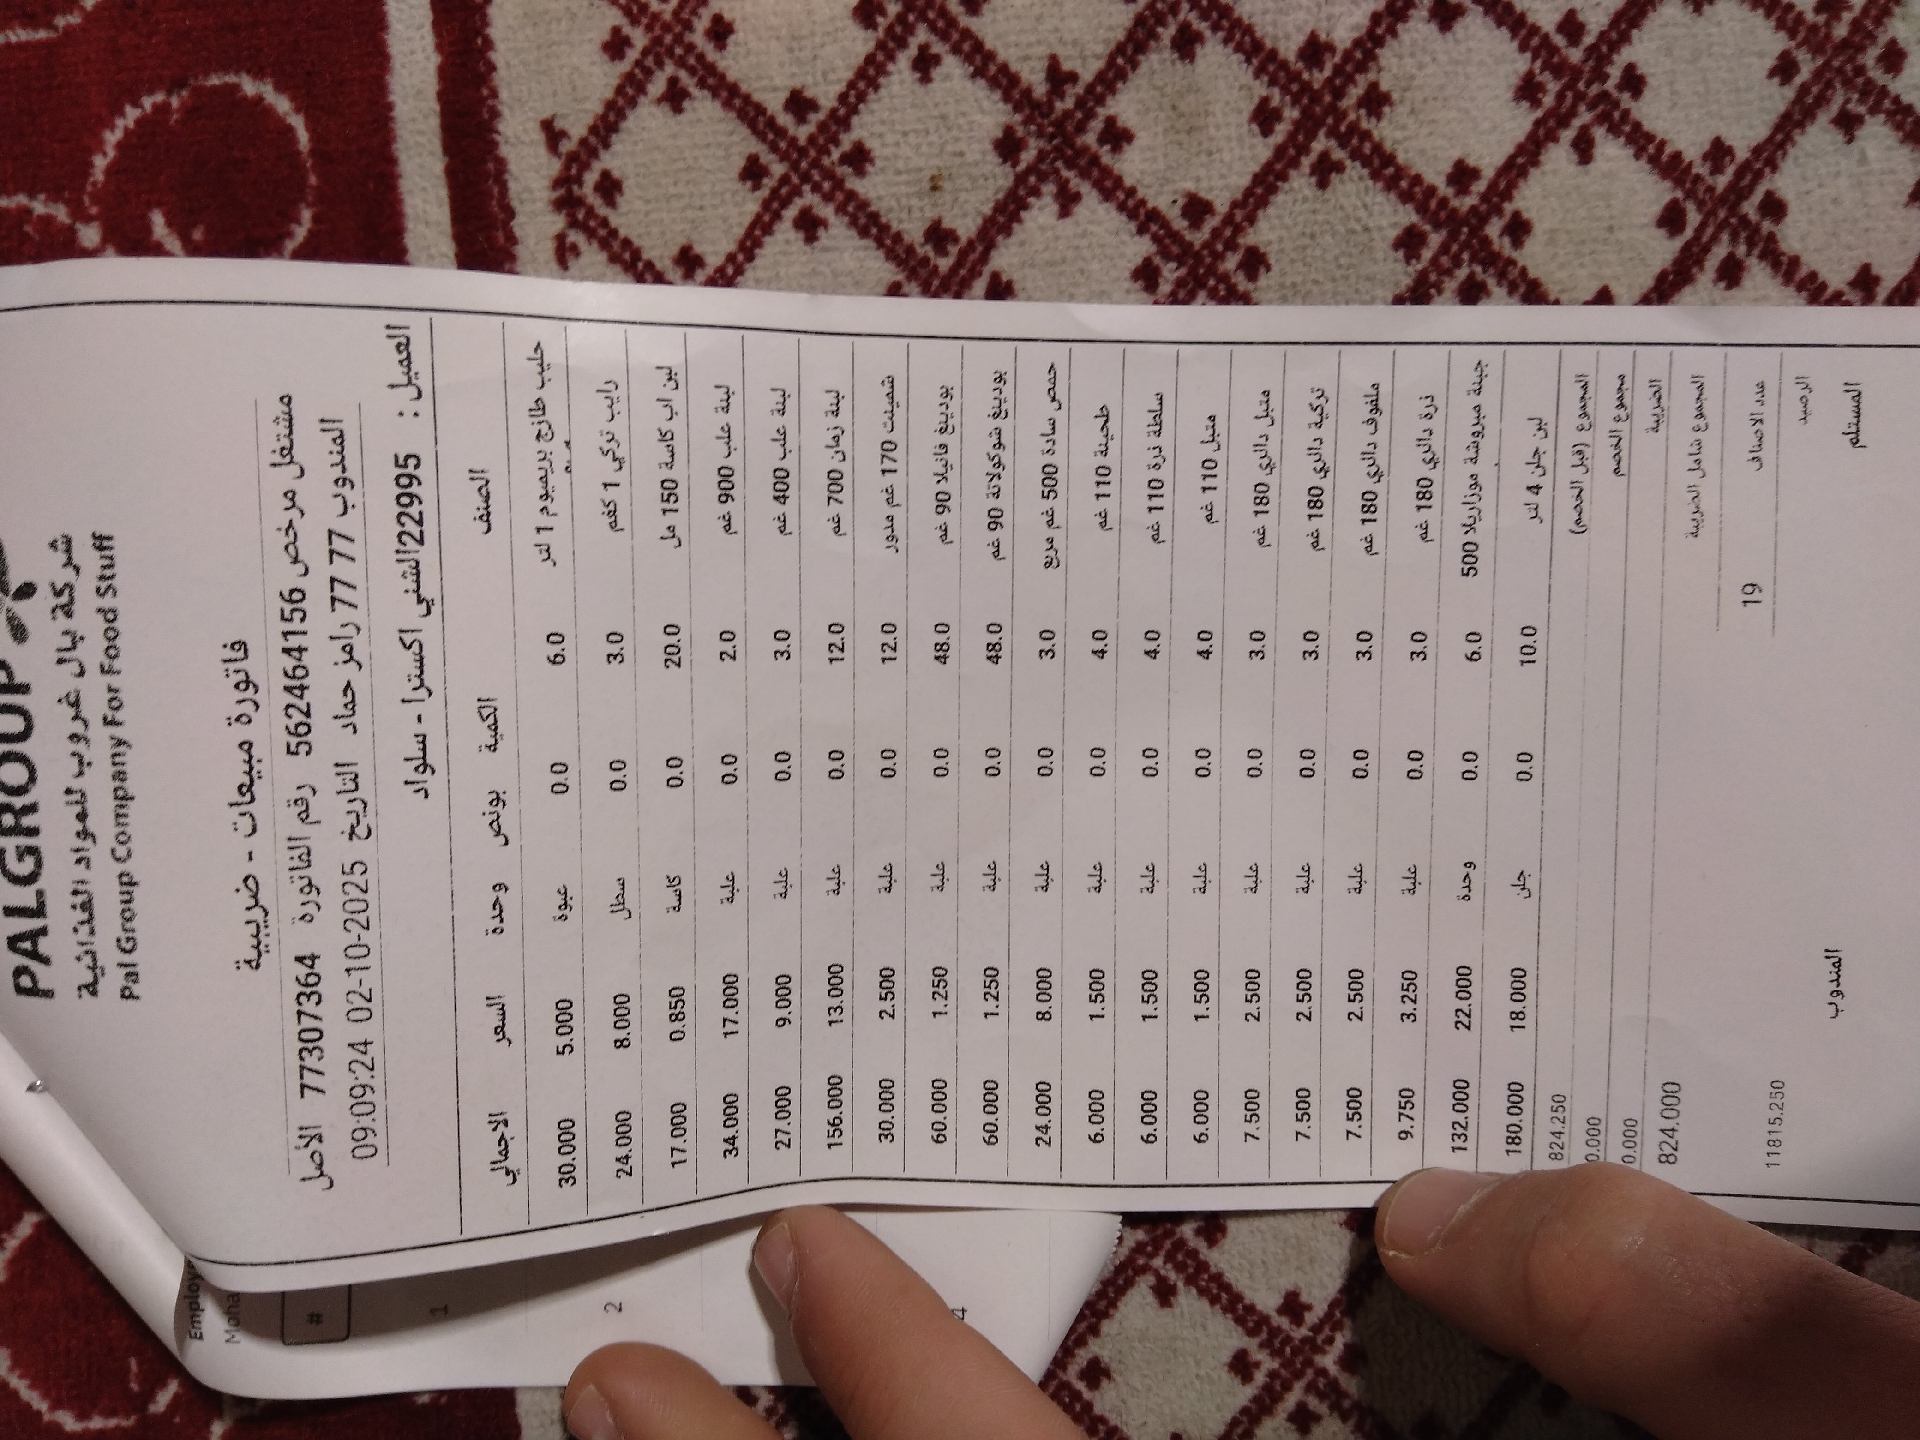 PALGROUP
شركة بال غروب للمواد الغذائية
Pal Group Company For Food Stuff
فاتورة مبيعات - ضريبية
مشتغل مرخص 562464156 رقم الفاتورة 77307364 الأصل
المندوب 77 77 رامز حماد التاريخ 02-10-2025 09:09:24
العميل : 22995الشني اكسترا - سلواد
الصنف الكمية بونص وحدة السعر الاجمالي
حليب طازج بريميوم 1 لتر 6.0 0.0 عبوة 5.000 30.000
رايب تركي 1 كغم 3.0 0.0 سطل 8.000 24.000
لبن اب كاسة 150 مل 20.0 0.0 كاسة 0.850 17.000
لبنة علب 900 غم 2.0 0.0 علبة 17.000 34.000
لبنة علب 400 غم 3.0 0.0 علبة 9.000 27.000
لبنة زمان 700 غم 12.0 0.0 علبة 13.000 156.000
شمينت 170 غم مدور 12.0 0.0 علبة 2.500 30.000
بودينغ فانيلا 90 غم 48.0 0.0 علبة 1.250 60.000
بودينغ شوكولاتة 90 غم 48.0 0.0 علبة 1.250 60.000
حمص سادة 500 غم مربع 3.0 0.0 علبة 8.000 24.000
طحينة 110 غم 4.0 0.0 علبة 1.500 6.000
سلطة ذرة 110 غم 4.0 0.0 علبة 1.500 6.000
متبل 110 غم 4.0 0.0 علبة 1.500 6.000
متبل دالري 180 غم 3.0 0.0 علبة 2.500 7.500
تركية دالري 180 غم 3.0 0.0 علبة 2.500 7.500
ملفوف دالري 180 غم 3.0 0.0 علبة 2.500 7.500
ذرة دالري 180 غم 3.0 0.0 علبة 3.250 9.750
جبنة مبروشة موزاريلا 500 6.0 0.0 وحدة 22.000 132.000
لبن جلن 4 لتر 10.0 0.0 جلن 18.000 180.000
المجموع (قبل الخصم) 824.250
مجموع الخصم 0.000
الضريبة 0.000
المجموع شامل الضريبة 824.000
عدد الاصناف 19
الرصيد 11815.250
المستلم المندوب
Employ
Moha
#
1
2
4